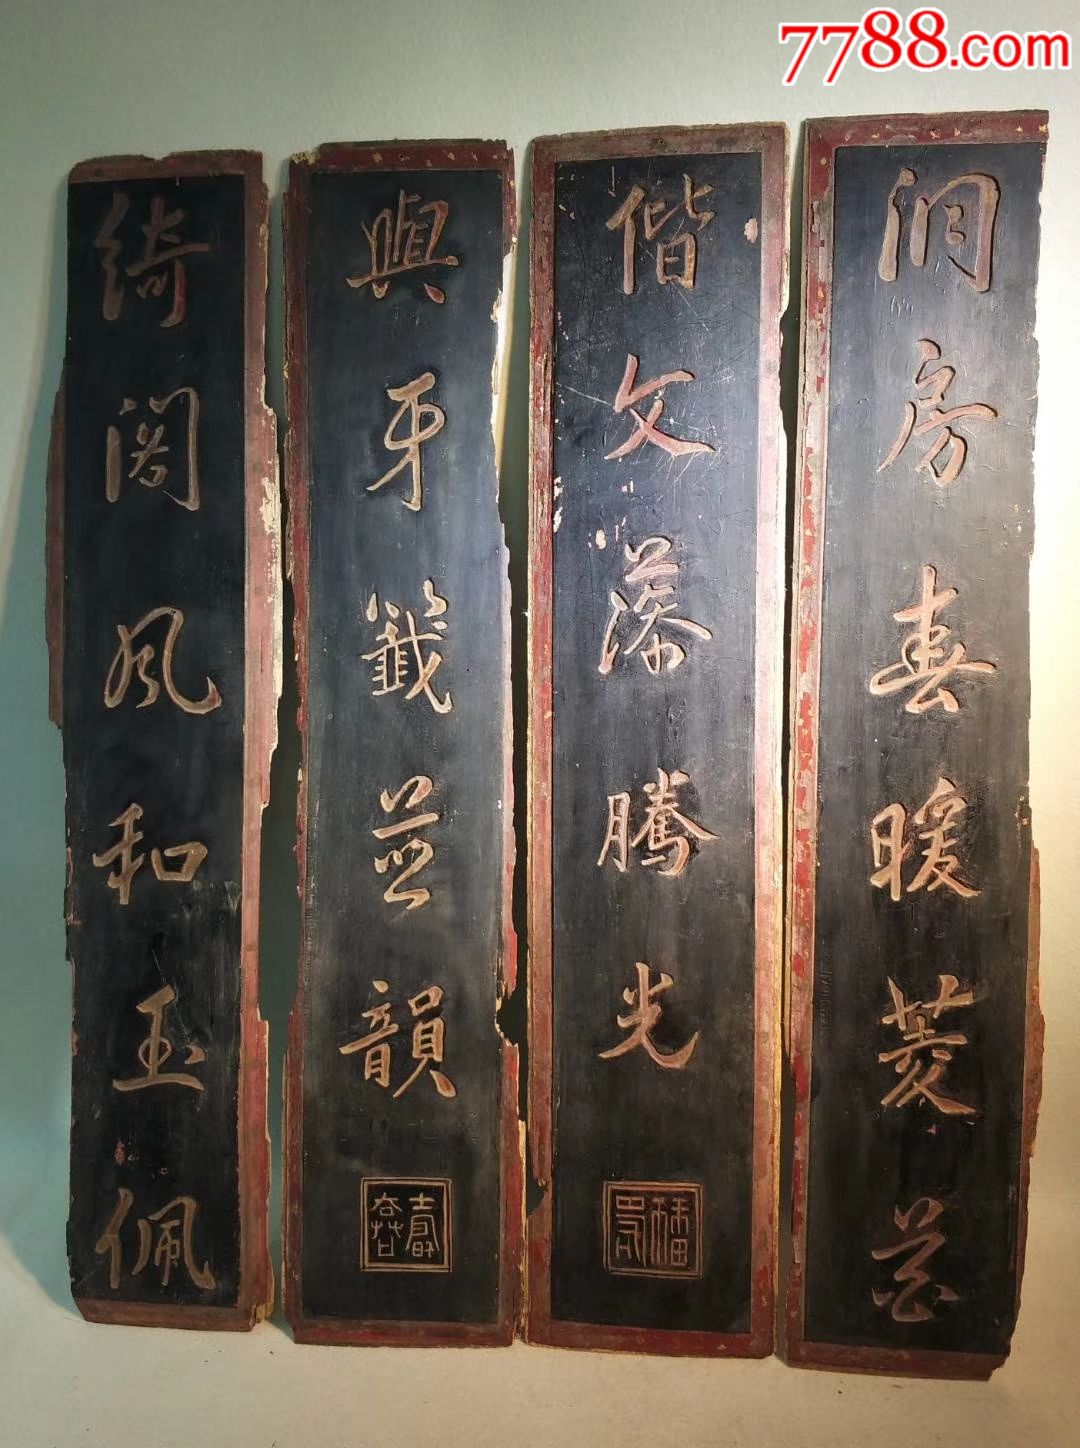 7788.com
洞房春暖菱花
偕文藻騰光
綺閣風和玉佩
與牙籤並韻